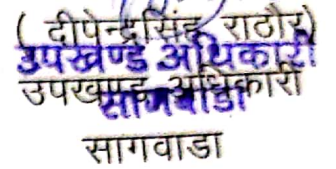 ( दीपेन्द्रसिंह राठौर)
उपखण्ड अधिकारी
उपखण्ड अधिकारी
सागवाडा
सागवाडा